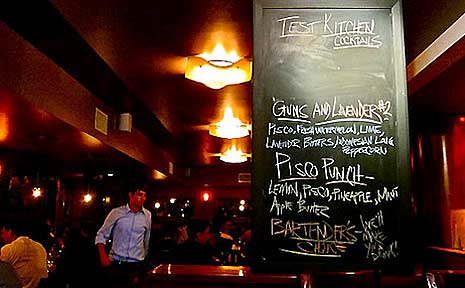 TEST KITCHEN
COCKTAILS
"GUNS AND LAVENDER" #2
PISCO, FRESH WATERMELON, LIME,
LAVENDER BITTERS, INDONESIAN LONG
PEPPERCORN
PISCO PUNCH -
LEMON, PISCO, PINEAPPLE, MINT
APPLE BUTTER
BARTENDER'S
CHOICE -
WE'LL
MAKE